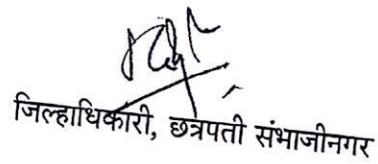 जिल्हाधिकारी, छत्रपती संभाजीनगर